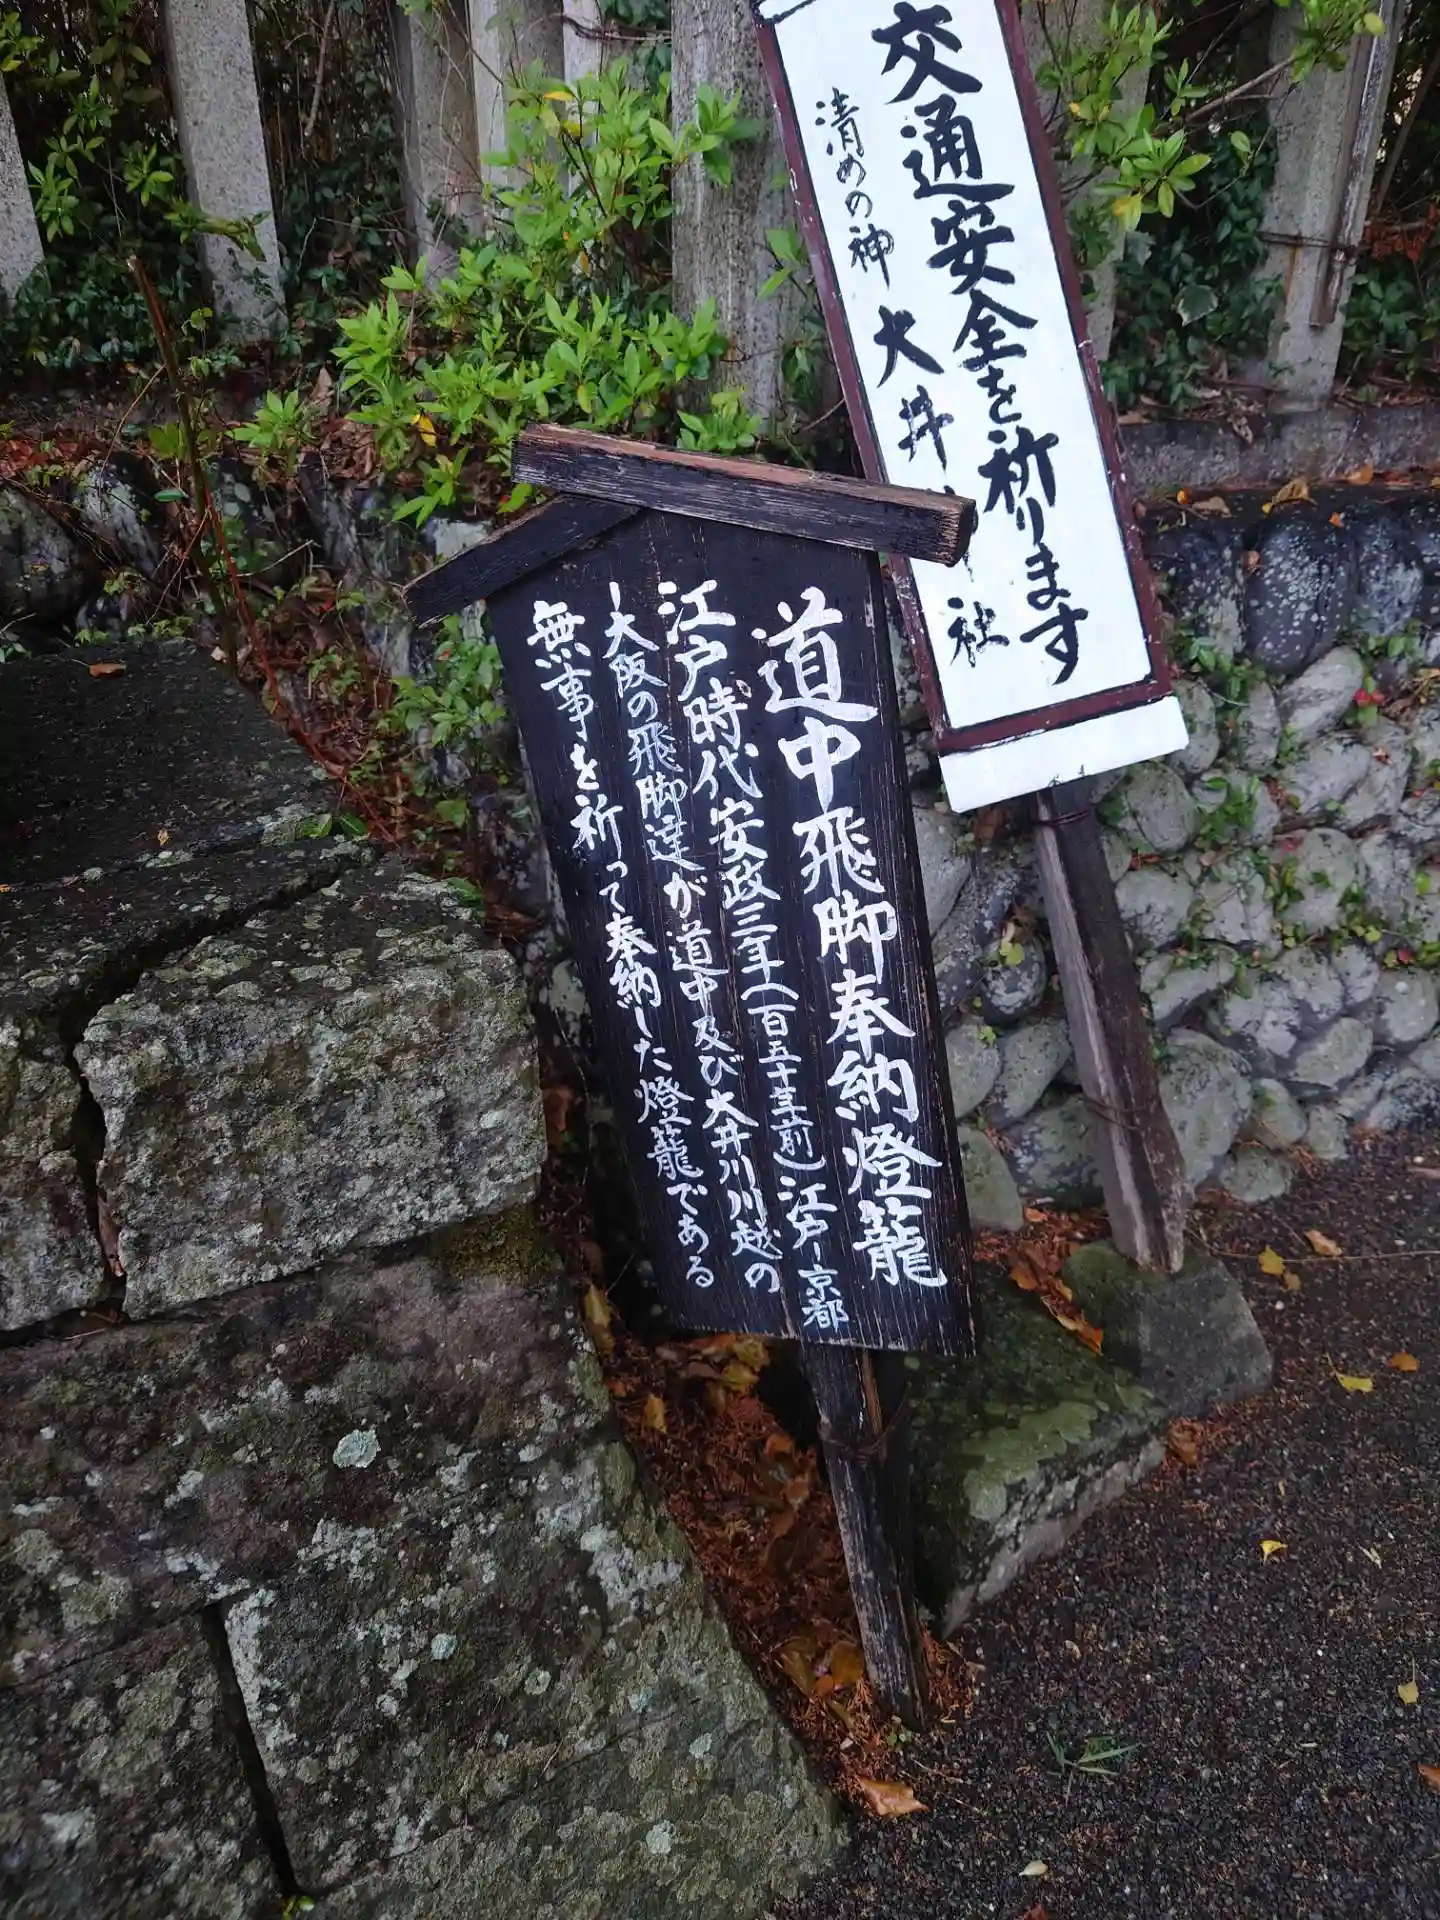 交通安全を祈ります
清めの神 大井神社
道中飛脚奉納燈籠
江戸時代安政三年(百五十年前)江戸ー京都
ー大阪の飛脚達が道中及び大井川川越の
無事を祈って奉納した燈籠である